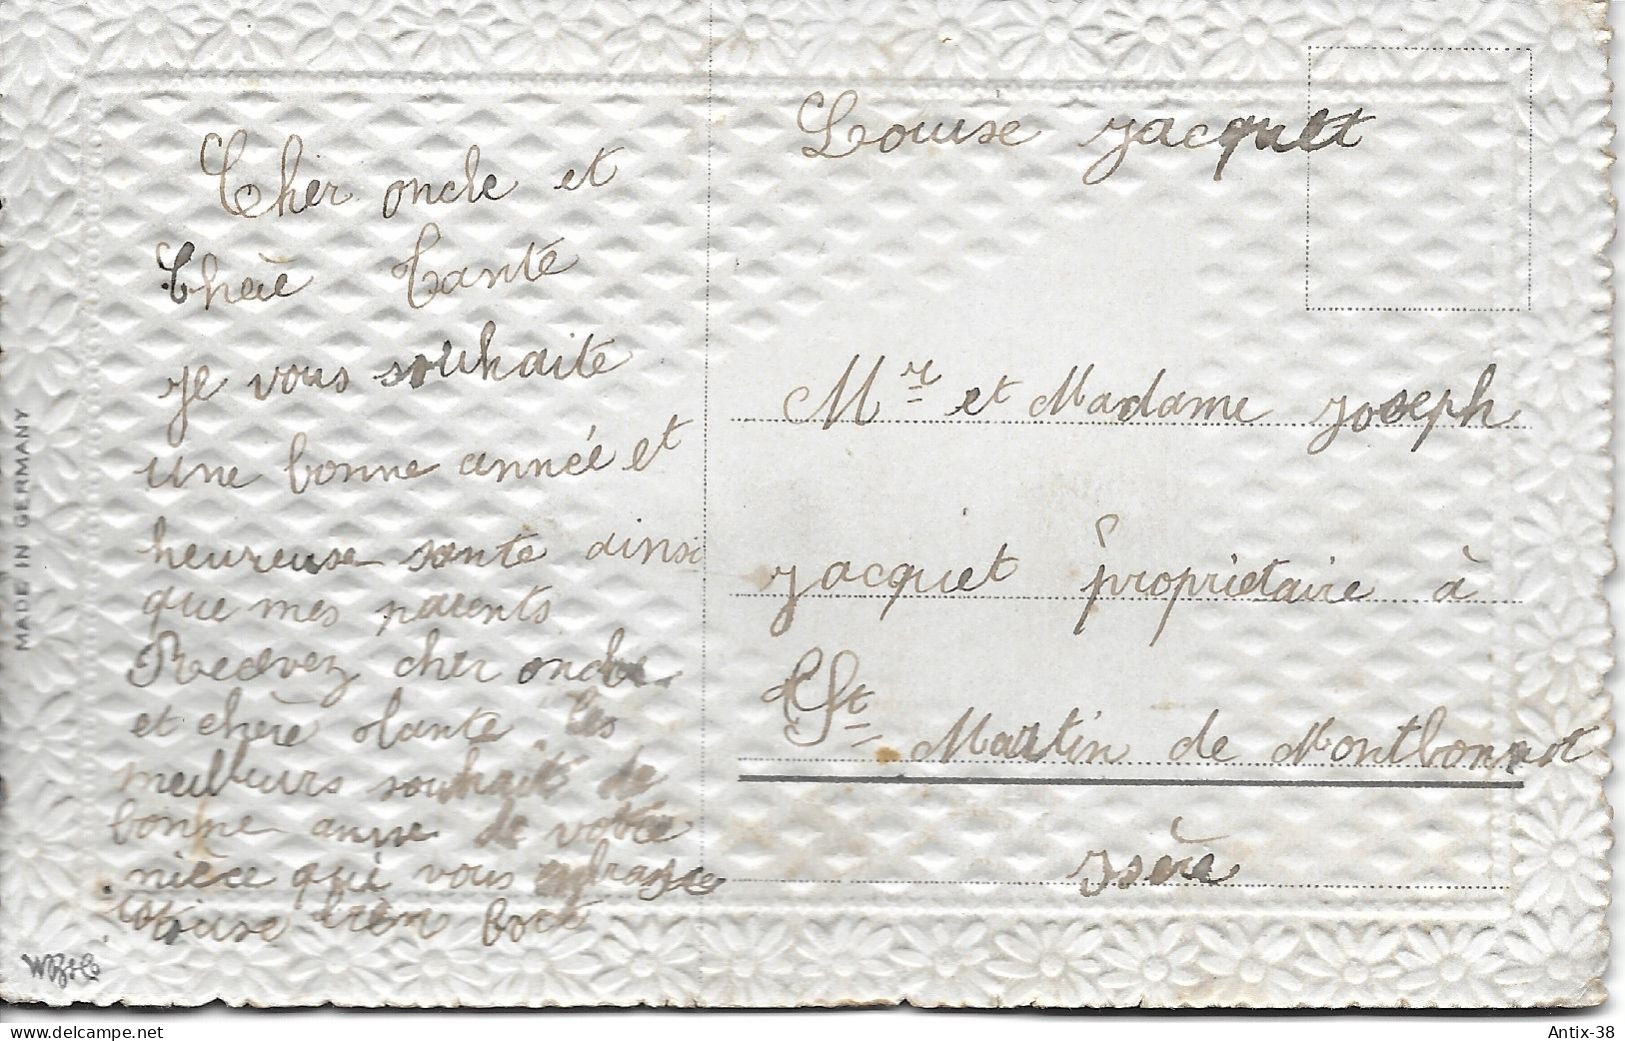 Cher oncle et
Chère Tante
je vous souhaite
une bonne année et
heureuse sante ainsi
que mes parents
Recevez cher oncle
et chère tante les
meilleurs souhaits de
bonne anne de votre
nièce qui vous embrasse
bien fort
Louise Jacquet
Mr et Madame Joseph
Jacquet propriétaire à
St Martin de Montbonnot
Isère
MADE IN GERMANY
delcampe.net
Antix-38